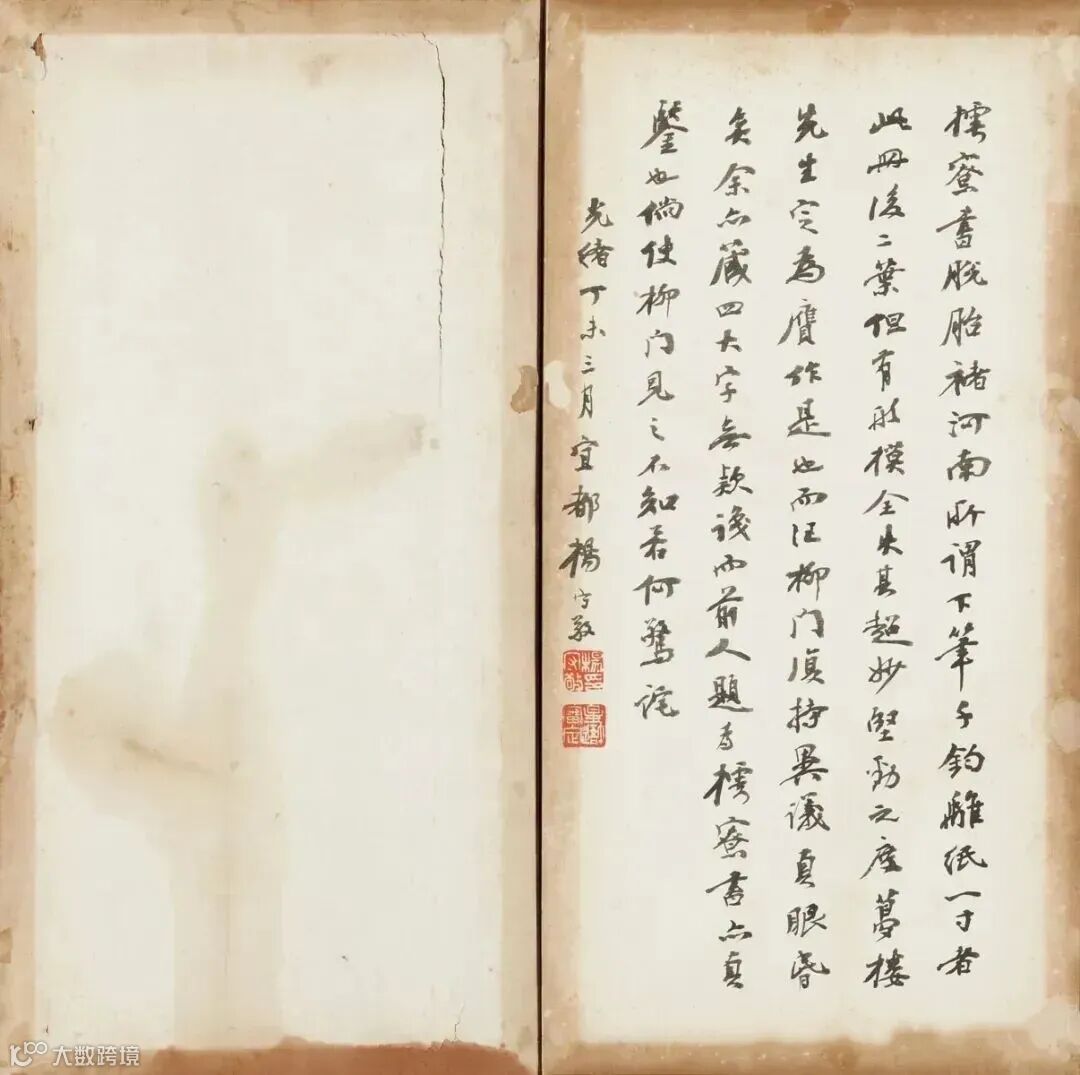 樗寮書脱胎褚河南所谓下筆千鈞離紙一寸者
此册後二葉但有形模全失其超妙堅勁之度夢樓
先生定為贋作是也而汪柳门湏持異議真眼昏
矣余亦蔵四大字無款識而前人題為樗寮書亦真
鑒也倘使柳门見之不知若何驚詫
光緒丁未三月宜都楊守敬
大数跨境